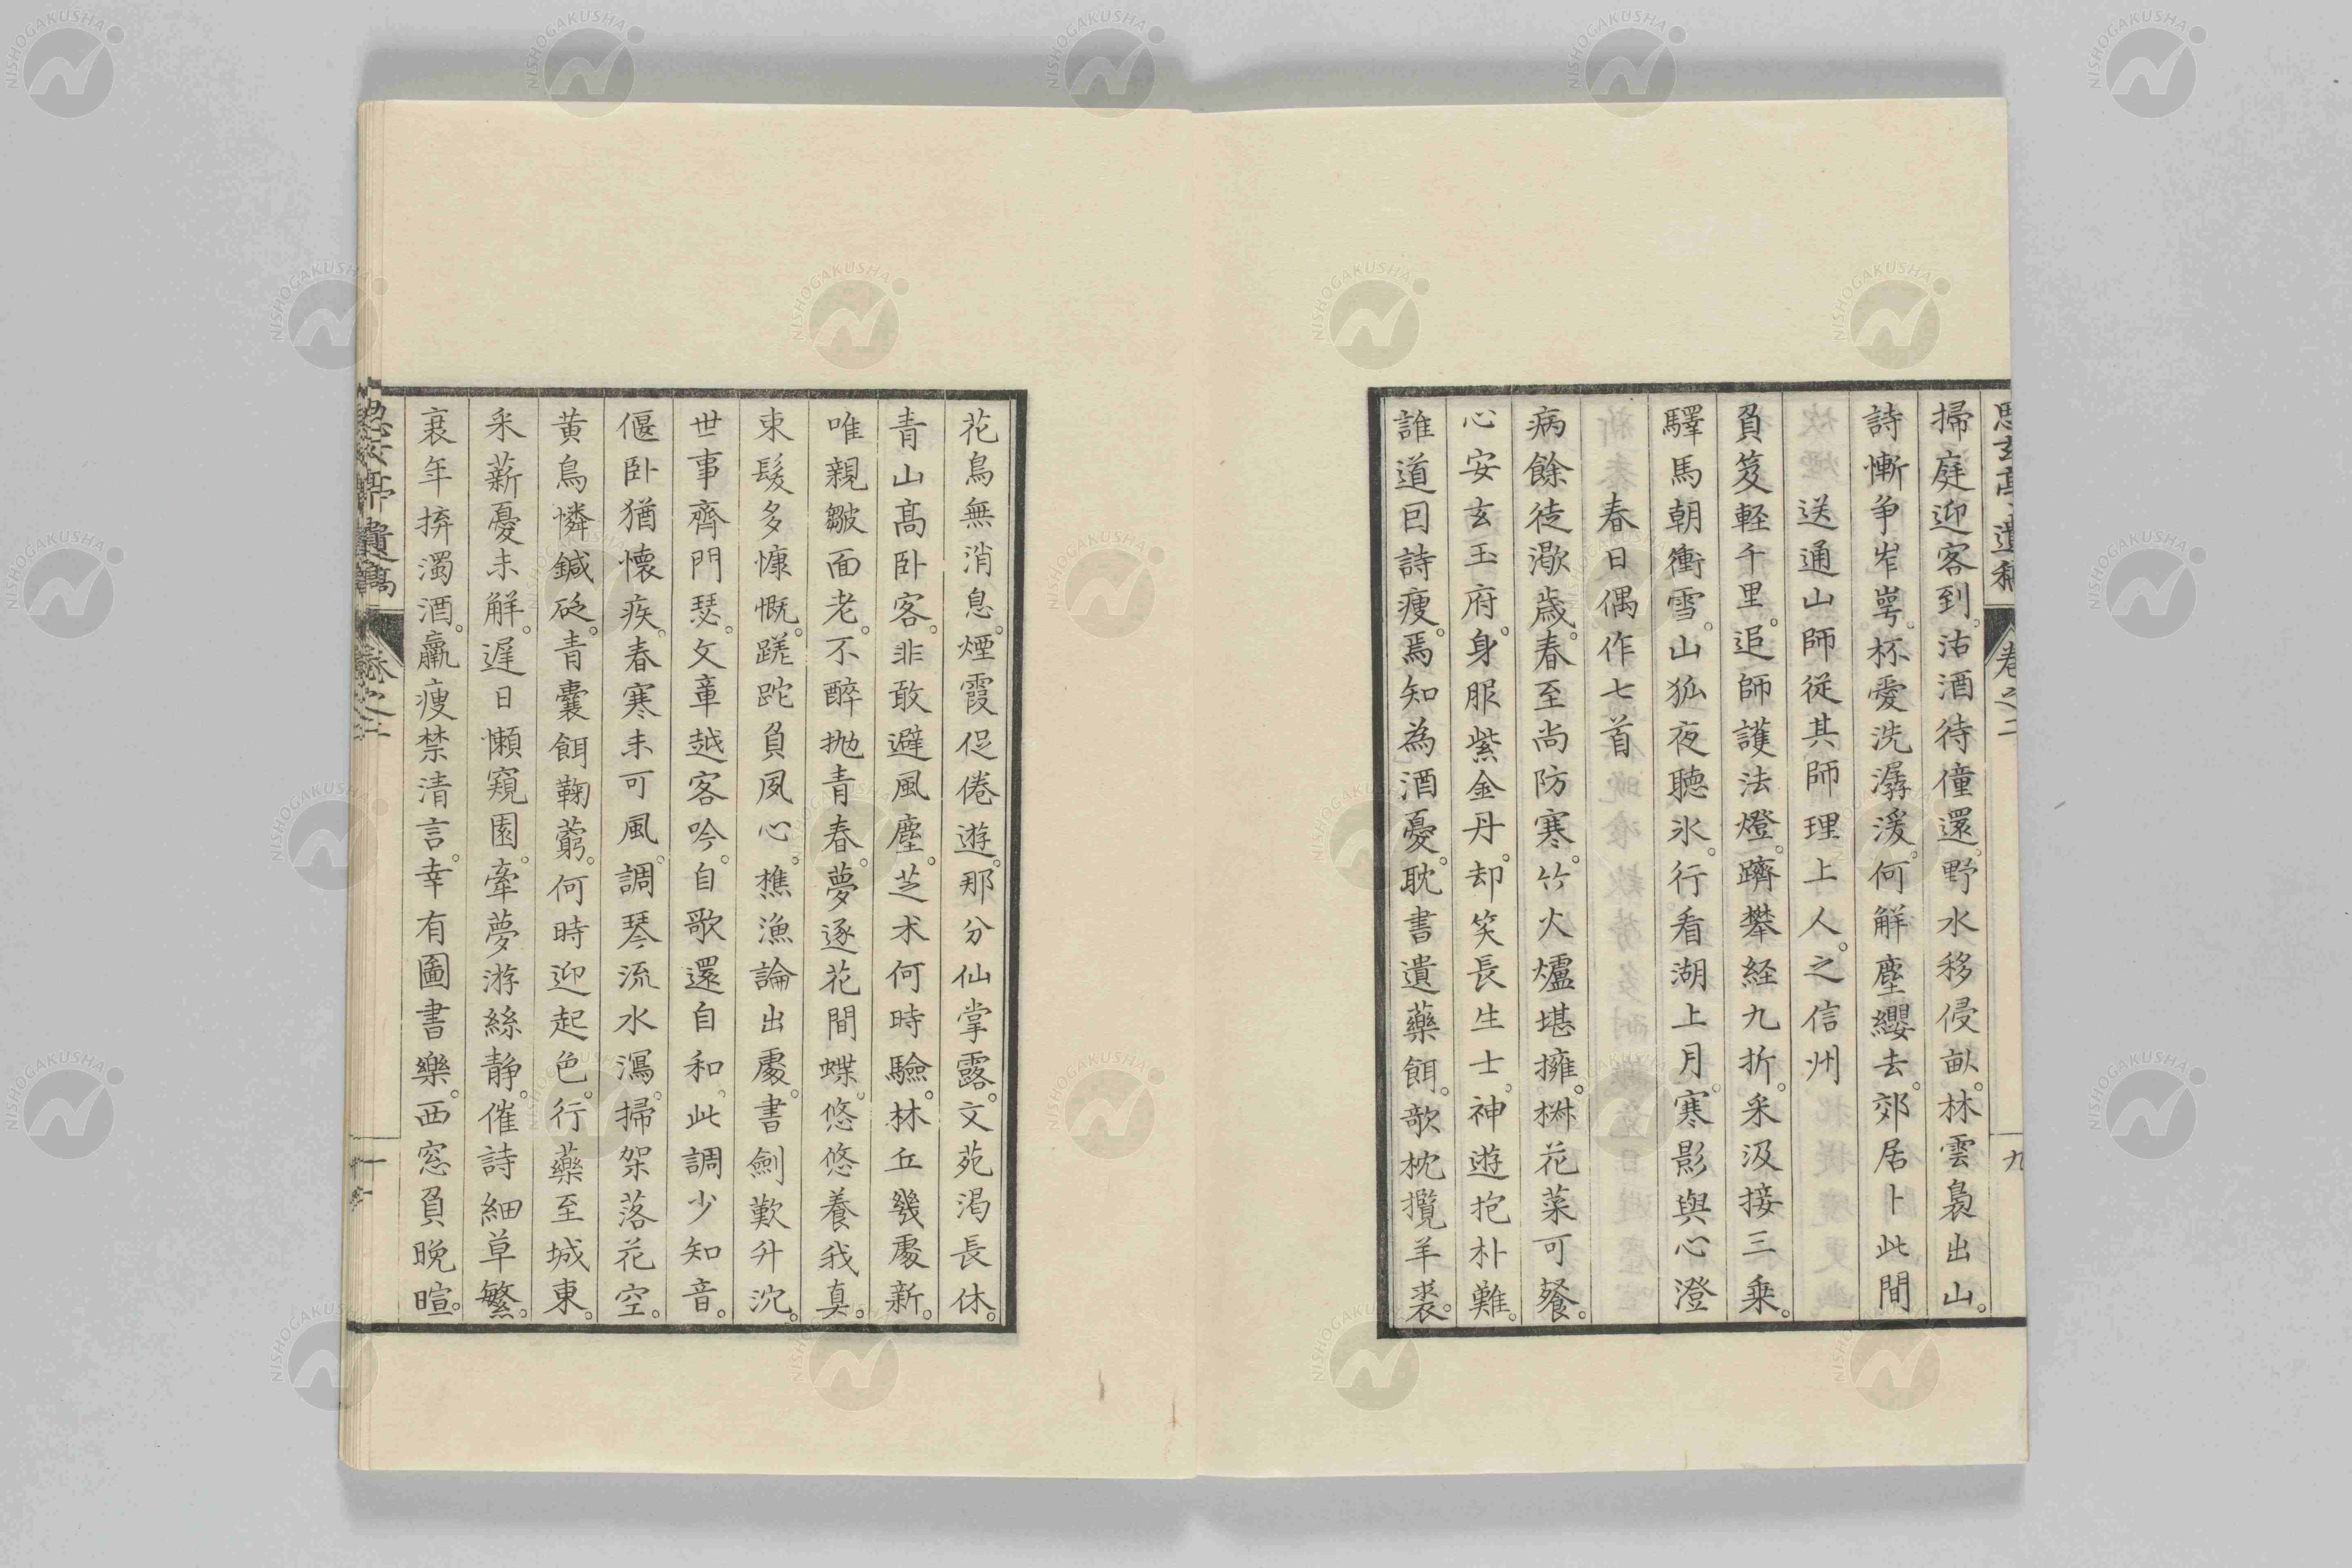 思玄亭遺稿 卷之二 九
掃庭迎客到。沽酒待僮還。野水移侵畝。林雲裊出山。
詩慚爭岝崿。杯愛洗潺湲。何解塵纓去。郊居卜此間
送通山師從其師理上人。之信州
負笈軽千里。追師護法燈。躋攀経九折。釆汲接三乗。
驛馬朝衝雪。山狐夜聴氷。行看湖上月。寒影與心澄
春日偶作七首
病餘徒澉歳。春至尚防寒。竹火爐堪擁。椒花菜可餐。
心安玄玉府。身服紫金丹。却笑長生士。神遊抱朴難。
誰道因詩瘦。焉知為酒憂。耽書遺藥餌。欹枕攬羊裘。
花鳥無消息。煙霞促倦遊。那分仙掌露。文苑渇長休。
青山高卧客。非敢避風塵。芝术何時驗。林丘幾處新。
唯親皺面老。不醉抛青春。夢逐花間蝶。悠悠養我真。
束髮多慷慨。蹉跎負夙心。樵漁論出處。書劍歎升沉。
世事齊門瑟。文章越客吟。自歌還自和。此調少知音。
偃卧猶懷疾。春寒未可風。調琴流水瀉。掃架落花空。
黄鳥憐鍼砭。青囊餌鞠藭。何時迎起色。行藥至城東。
釆薪憂未解。遅日懶窺園。牽夢游絲静。催詩細草繁。
衰年擠濁酒。羸瘦禁清言。幸有圖書樂。西窓負晩暄。
卷之二
NISHOGAKUSHA